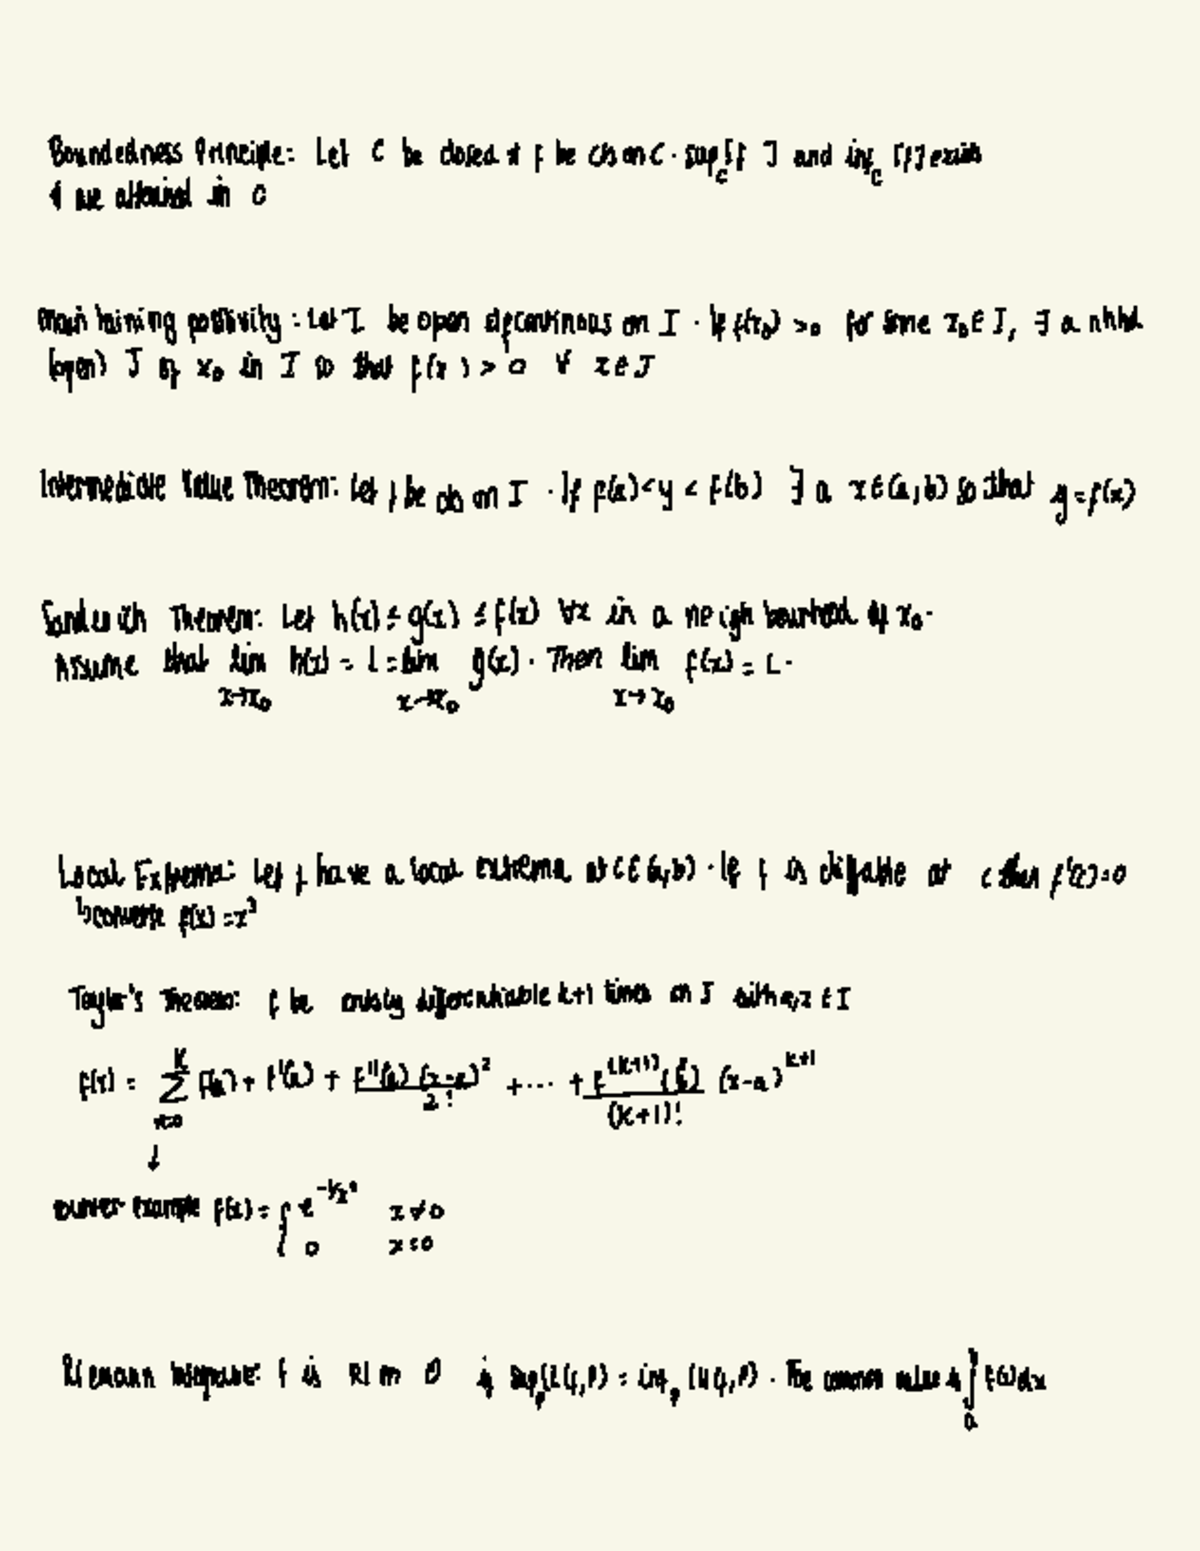 Boundedness Principle: Let C be closed & f be cts on C. sup_C [f] and inf_C [f] exists
& are attained in C
maintaining positivity: Let I be open & f continous on I. If f(x₀) >0 for some x₀ ∈ I, ∃ a nhbd
(open) J of x₀ in I so that f(x) > 0 ∀ x ∈ J
Intermediate Value Theorem: Let f be cts on I. If f(a) < y < f(b) ∃ a x ∈ (a,b) so that y = f(x)
Sandwich Theorem: Let h(x) ≤ g(x) ≤ f(x) ∀x in a neighbourhood of x₀.
Assume that lim h(x) = L = lim g(x). Then lim f(x) = L.
x→x₀ x→x₀ x→x₀
Local Extrema: Let f have a local extrema at c ∈ (a,b). If f is diffable at c then f'(c)=0
↳ converse f(x) = x³
Taylor's Theorem: f be differentiable k+1 times on I with a,x ∈ I
f(x) = Σ_{n=0}^{K} f(a) + f'(a) + f''(a)(x-a)²/2! + ... + f^{(k+1)}(ξ)/(k+1)! (x-a)^{k+1}
↓
counter example f(x) = { e^{-1/x²} x ≠ 0
0 x = 0
Riemann Integrable: f is RI on if sup_p {L(f,P)} = inf_p {U(f,P)}. The common value is ∫_a^b f(x)dx